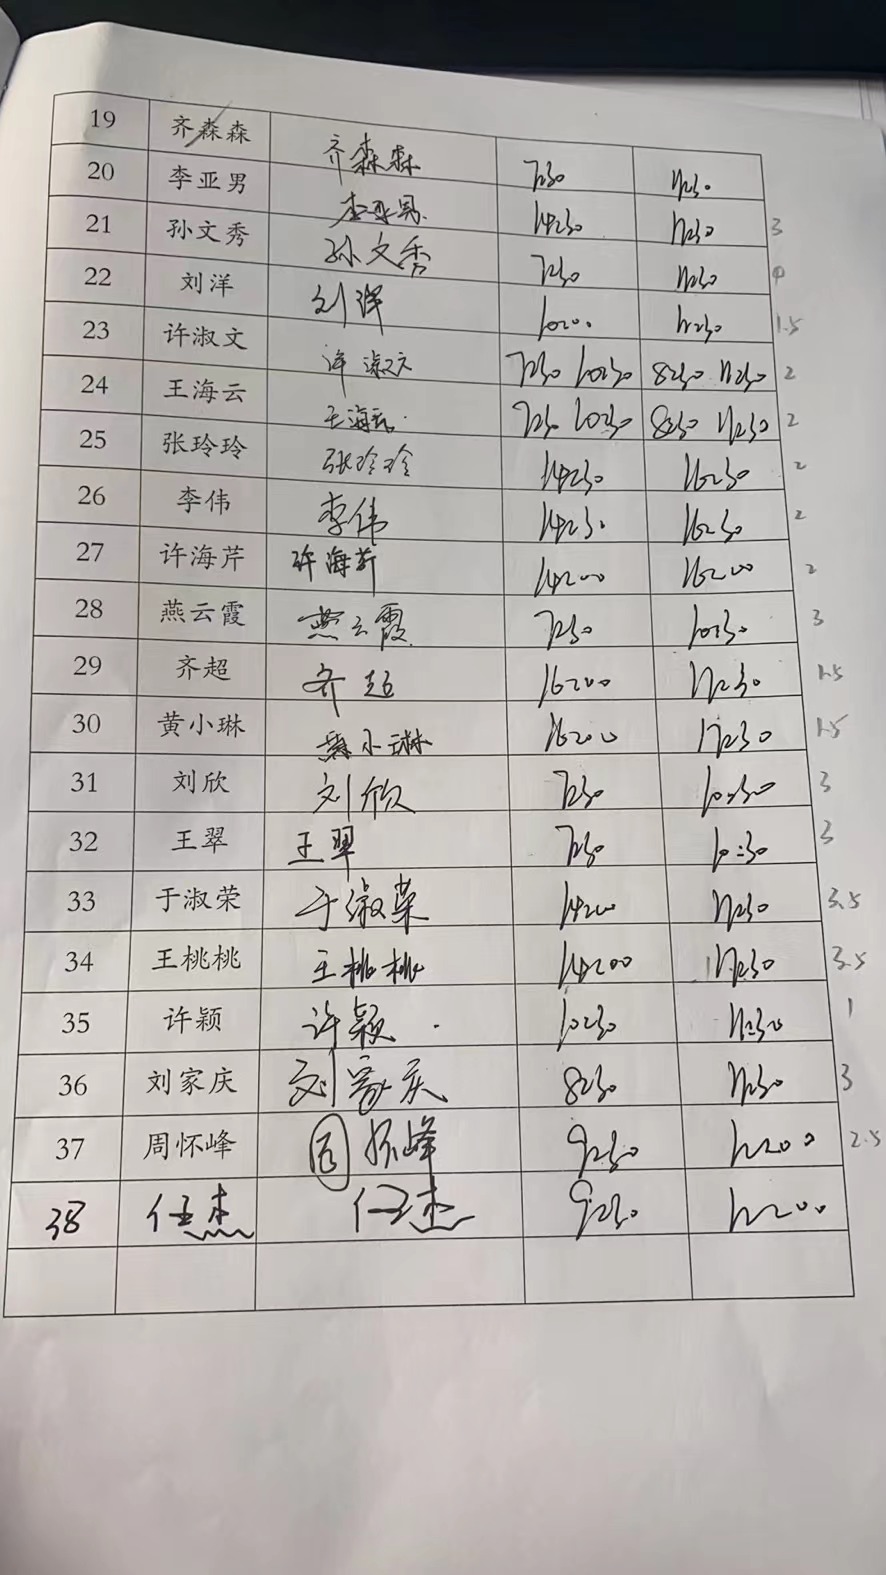 19 齐森森 齐森森 7:30 11:30
20 李亚男 李亚男 14:30 17:30 3
21 孙文秀 孙文秀 7:30 11:30
22 刘洋 刘洋 10:00 11:30 1.5
23 许淑文 许淑文 7:30 10:30 8:30 11:30 2
24 王海云 王海云 7:30 10:30 8:30 11:30 2
25 张玲玲 张玲玲 14:30 16:30 2
26 李伟 李伟 14:30 16:30 2
27 许海芹 许海芹 14:00 16:00 2
28 燕云霞 燕云霞 7:30 10:30 3
29 齐超 齐超 16:00 17:30 1.5
30 黄小琳 黄小琳 16:00 17:30 1.5
31 刘欣 刘欣 7:30 10:30 3
32 王翠 王翠 7:30 10:30 3
33 于淑荣 于淑荣 14:00 17:30 3.5
34 王桃桃 王桃桃 14:00 17:30 3.5
35 许颖 许颖 10:30 11:30 1
36 刘家庆 刘家庆 8:30 11:30 3
37 周怀峰 周怀峰 9:30 12:00 2.5
38 任杰 任杰 9:30 12:00